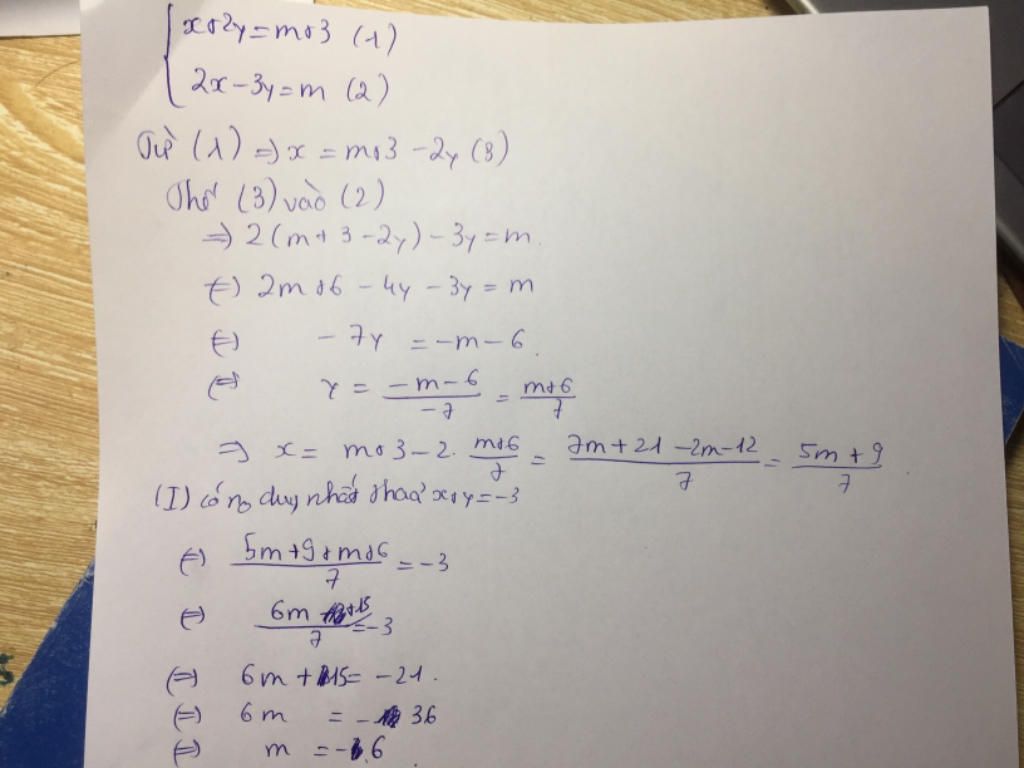 { x+2y=m+3 (1)
2x-3y=m (2)
Từ (1) => x = m+3 -2y (3)
Thế (3) vào (2)
=> 2(m+3-2y)-3y=m.
<=> 2m+6 - 4y - 3y = m
<=> -7y = -m-6.
<=> y = (-m-6)/(-7) = (m+6)/7
=> x = m+3-2. (m+6)/7 = (7m+21-2m-12)/7 = (5m+9)/7
(I) có no duy nhất thoả x+y=-3
<=> (5m+9+m+6)/7 = -3
<=> (6m +15)/7 = -3
<=> 6m + 15 = -21.
<=> 6m = -36
<=> m = -6